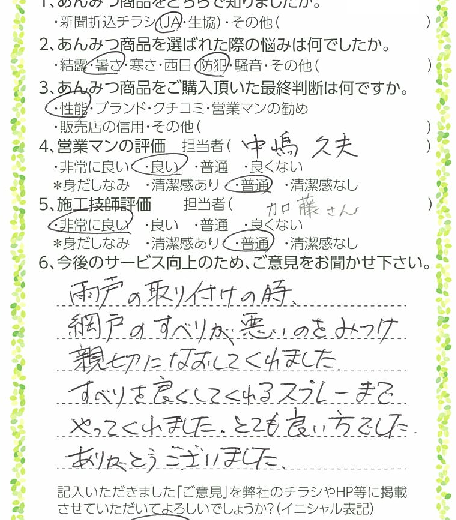 1、あんみつ商品をどちらで知りましたか。
・新聞折込チラシ・JA・生協)・その他( )
2、あんみつ商品を選ばれた際の悩みは何でしたか。
・結露・暑さ・寒さ・西日・防犯・騒音・その他( )
3、あんみつ商品をご購入頂いた最終判断は何ですか。
・性能・ブランド・クチコミ・営業マンの勧め
・販売店の信用・その他( )
4、営業マンの評価 担当者( 中嶋 久夫 )
・非常に良い ・良い ・普通 ・良くない
＊身だしなみ ・清潔感あり ・普通 ・清潔感なし
5、施工技師評価 担当者( 加藤さん )
・非常に良い ・良い ・普通 ・良くない
＊身だしなみ ・清潔感あり ・普通 ・清潔感なし
6、今後のサービス向上のため、ご意見をお聞かせ下さい。
雨戸の取り付けの時、
網戸のすべりが、悪いのをみつけ
親切になおしてくれました
すべりを良くしてくれるスプレーまで
やってくれました。とても良い方でした
ありがとうございました、
記入いただきました「ご意見」を弊社のチラシやHP等に掲載
させていただいてよろしいでしょうか?(イニシャル表記)